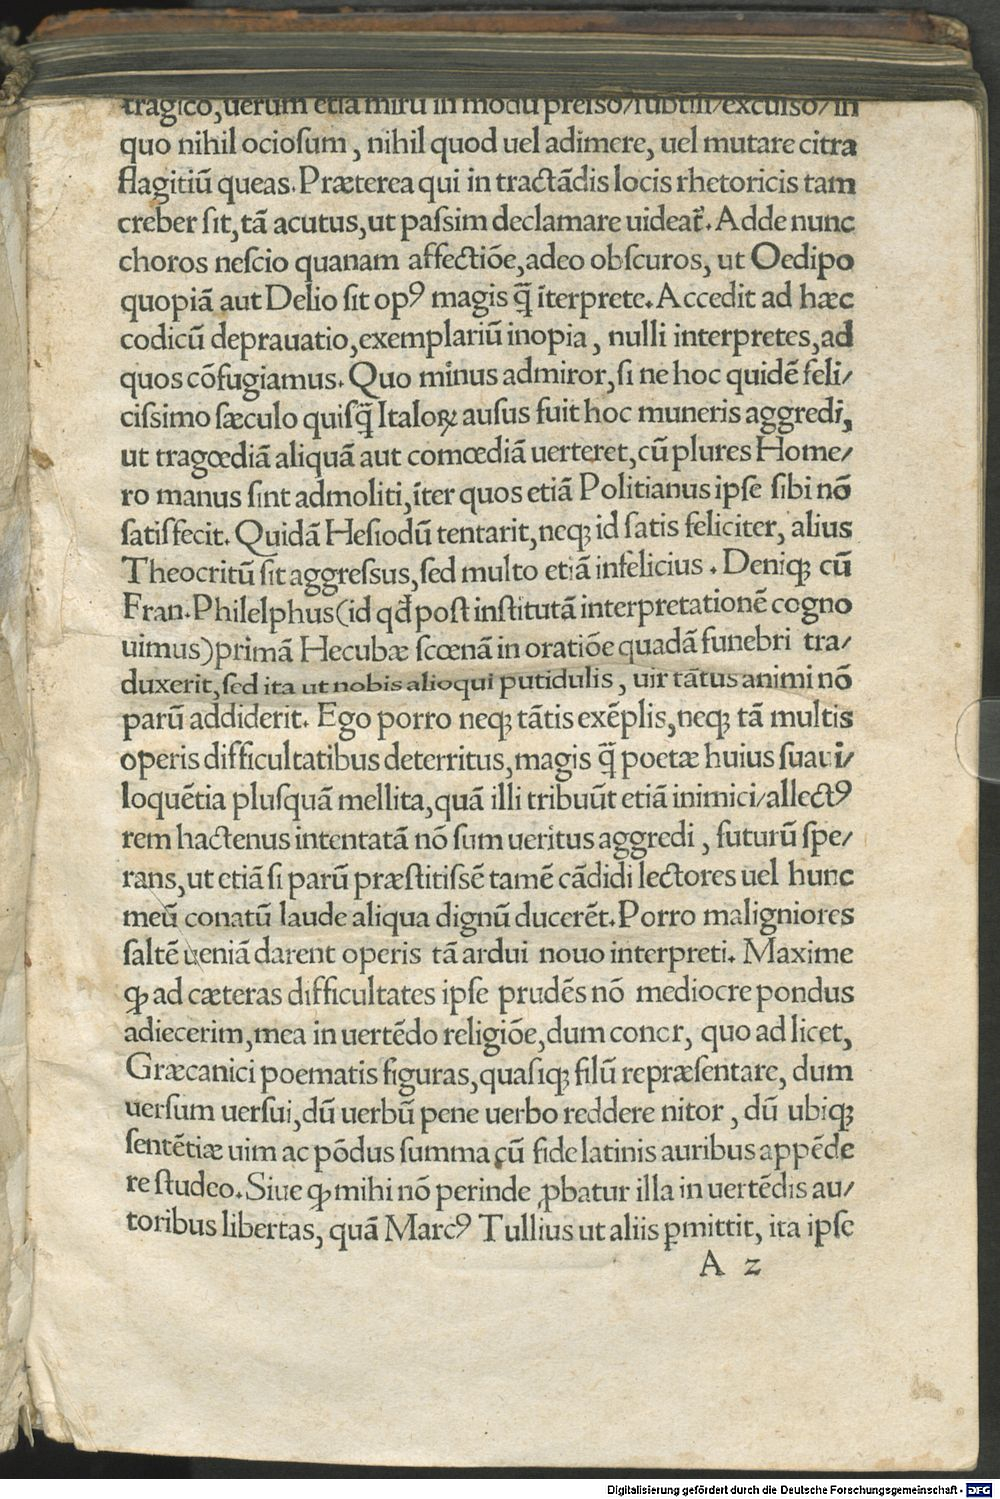 tragico,uerum etiã mirũ in modũ presso/subtili/excusso/in
quo nihil ociosum, nihil quod uel adimere, uel mutare citra
flagitiũ queas. Præterea qui in tractãdis locis rhetoricis tam
creber sit,tã acutus,ut passim declamare uideat᷑. Adde nunc
choros nescio quanam affectiõe,adeo obscuros, ut Oedipo
quopiã aut Delio sit opꝰ magis q̃ ĩterprete. Accedit ad hæc
codicũ deprauatio,exemplariũ inopia, nulli interpretes,ad
quos cõfugiamus. Quo minus admiror,si ne hoc quidẽ feli/
cissimo sæculo quisq̃ Italoꝝ ausus fuit hoc muneris aggredi,
ut tragœdiã aliquã aut comœdiã uerteret,cũ plures Home/
ro manus sint admoliti,ĩter quos etiã Politianus ipse sibi nõ
satisfecit. Quidã Hesiodũ tentarit,neqꝫ id satis feliciter, alius
Theocritũ sit aggressus,sed multo etiã infelicius. Deniqꝫ cũ
Fran.Philelphus(id qđ post institutã interpretationẽ cogno
uimus)primã Hecubæ scœnã in oratiõe quadã funebri tra/
duxerit,sed ita ut nobis alioqui putidulis, uir tãtus animi nõ
parũ addiderit. Ego porro neqꝫ tãtis exẽplis,neqꝫ tã multis
operis difficultatibus deterritus,magis q̃ poetæ huius suaui/
loquẽtia plusquã mellita,quã illi tribuũt etiã inimici/allectꝰ
rem hactenus intentatã nõ sum ueritus aggredi, futurũ spe/
rans,ut etiã si parũ præstitissẽ tamẽ cãdidi lectores uel hunc
meũ conatũ laude aliqua dignũ ducerẽt. Porro maligniores
saltẽ ueniã darent operis tã ardui nouo interpreti. Maxime
ꝙ ad cæteras difficultates ipse prudẽs nõ mediocre pondus
adiecerim,mea in uertẽdo religiõe,dum conor, quo ad licet,
Græcanici poematis figuras,quasiqꝫ filũ repræsentare, dum
uersum uersui,dũ uerbũ pene uerbo reddere nitor, dũ ubiqꝫ
sentẽtiæ uim ac põdus summa cũ fide latinis auribus appẽde
re studeo. Siue ꝙ mihi nõ perinde ꝓbatur illa in uertẽdis au/
toribus libertas, quã Marcꝰ Tullius ut aliis ꝑmittit, ita ipse
A 2
Digitalisierung gefördert durch die Deutsche Forschungsgemeinschaft - DFG